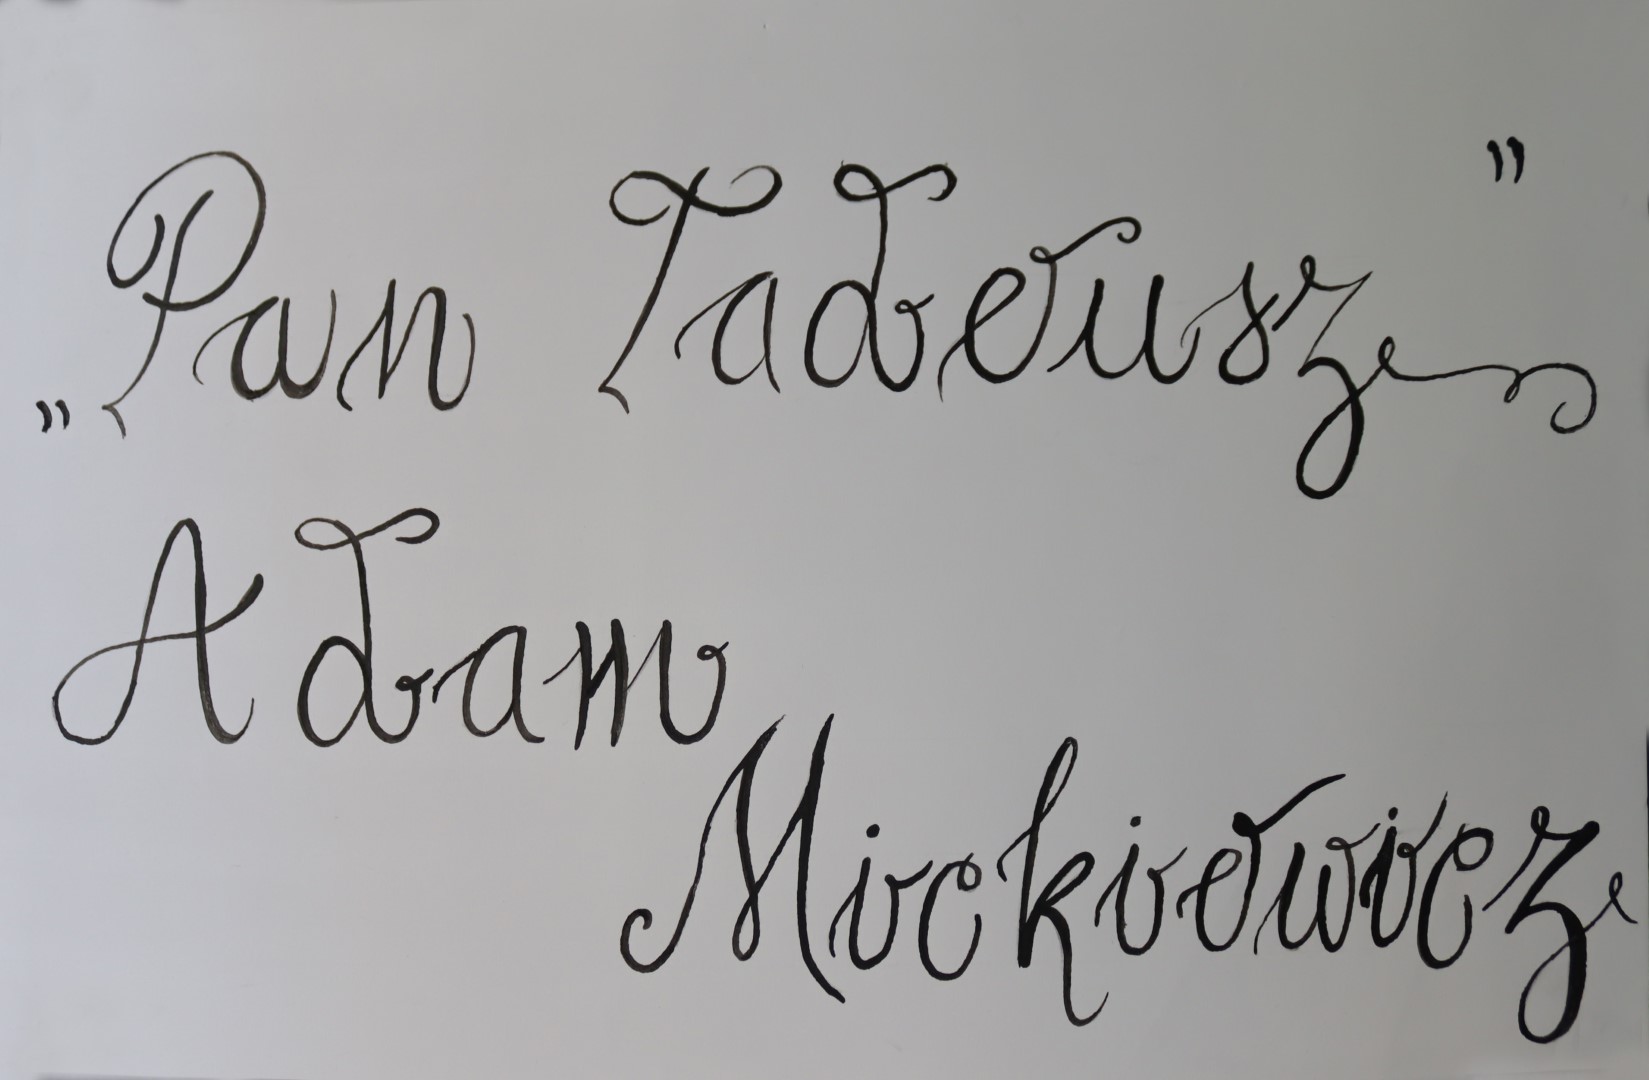 „Pan Tadeusz”
Adam
Mickiewicz